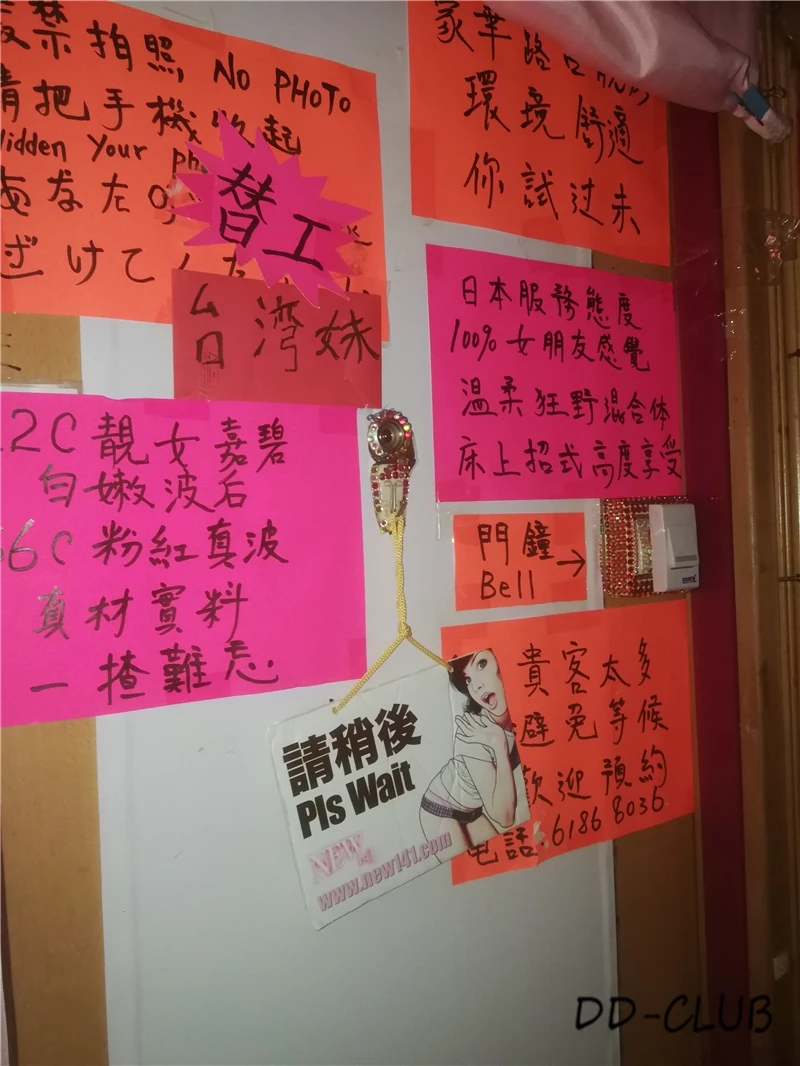 嚴禁拍照 NO PHOTO
請把手機收起
Hidden Your
あなたの
ざけてくだ
替工
台灣妹
環境舒適
你試过未
日本服務態度
100% 女朋友感覺
温柔狂野混合体
床上招式高度享受
2C 靚女嘉碧
白嫩波后
36C 粉紅真波
真材實料
一揸難忘
門鐘→
Bell
貴客太多
避免等候
歡迎預約
电話:6186 8036
請稍後
Pls Wait
NEW 141
www.new141.com
DD-CLUB